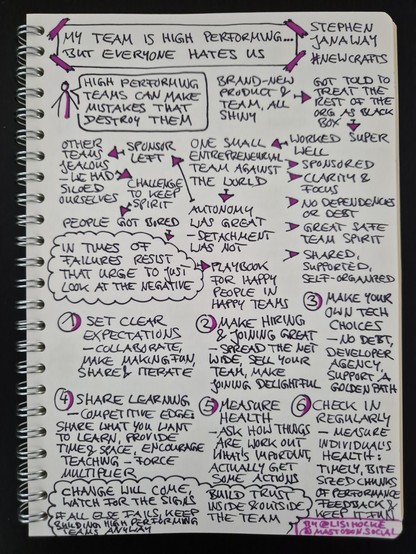 MY TEAM IS HIGH PERFORMING...
BUT EVERYONE HATES US
STEPHEN
JANAWAY
#NEWCRAFTS
HIGH PERFORMING
TEAMS CAN MAKE
MISTAKES THAT
DESTROY THEM
BRAND-NEW
PRODUCT &
TEAM, ALL
SHINY
GOT TOLD TO
TREAT THE
REST OF THE
ORG AS BLACK
BOX
WORKED SUPER
WELL
SPONSORED
CLARITY &
FOCUS
NO DEPENDENCIES
OR DEBT
GREAT SAFE
TEAM SPIRIT
SHARED,
SUPPORTED,
SELF-ORGANIZED
ONE SMALL
ENTREPRENEURIAL
TEAM AGAINST
THE WORLD
AUTONOMY
WAS GREAT
- DETACHMENT
WAS NOT
SPONSOR
LEFT
OTHER
TEAMS
JEALOUS
- WE HAD
SILOED
OURSELVES
CHALLENGE
TO KEEP
SPIRIT
PEOPLE GOT BORED
IN TIMES OF
FAILURES RESIST
THAT URGE TO JUST
LOOK AT THE NEGATIVE
PLAYBOOK
FOR HAPPY
PEOPLE IN
HAPPY TEAMS
1 SET CLEAR
EXPECTATIONS
- COLLABORATE,
MAKE MAKING FUN,
SHARE & ITERATE
2 MAKE HIRING
& JOINING GREAT
- SPREAD THE NET
WIDE, SELL YOUR
TEAM, MAKE
JOINING DELIGHTFUL
3 MAKE YOUR
OWN TECH
CHOICES
- NO DEBT,
DEVELOPER
AGENCY,
SUPPORT A
GOLDEN PATH
4 SHARE LEARNING
- COMPETITIVE EDGE:
SHARE WHAT YOU WANT
TO LEARN, PROVIDE
TIME & SPACE, ENCOURAGE
TEACHING - FORCE
MULTIPLIER
5 MEASURE
HEALTH
- ASK HOW THINGS
ARE, WORK OUT
WHAT'S IMPORTANT,
ACTUALLY GET
SOME ACTIONS
6 CHECK IN
REGULARLY
- MEASURE
INDIVIDUAL'S
HEALTH:
TIMELY, BITE
SIZED CHUNKS
OF PERFORMANCE
FEEDBACK &
KEEP IT FUN
CHANGE WILL COME,
WATCH FOR THE SIGNS
IF ALL ELSE FAILS, KEEP
BUILDING HIGH PERFORMING
TEAMS ANYWAY
BUILD TRUST
INSIDE & OUTSIDE
THE TEAM
BY @LISIHOCKE
@MASTODON.SOCIAL